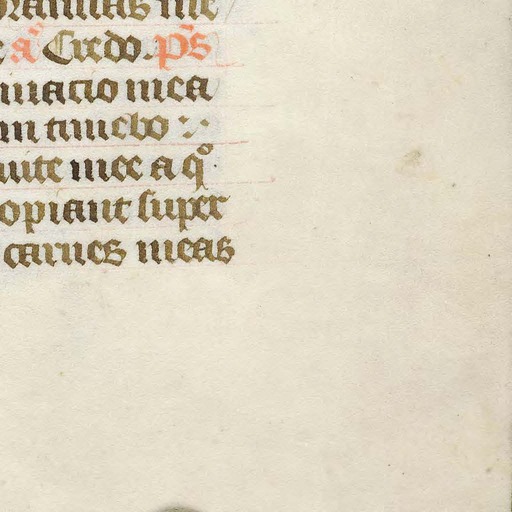 a͠ Credo. p͠s
inatio mea
m timebo :·
uite mee a qͦ
opiant super
carnes meas